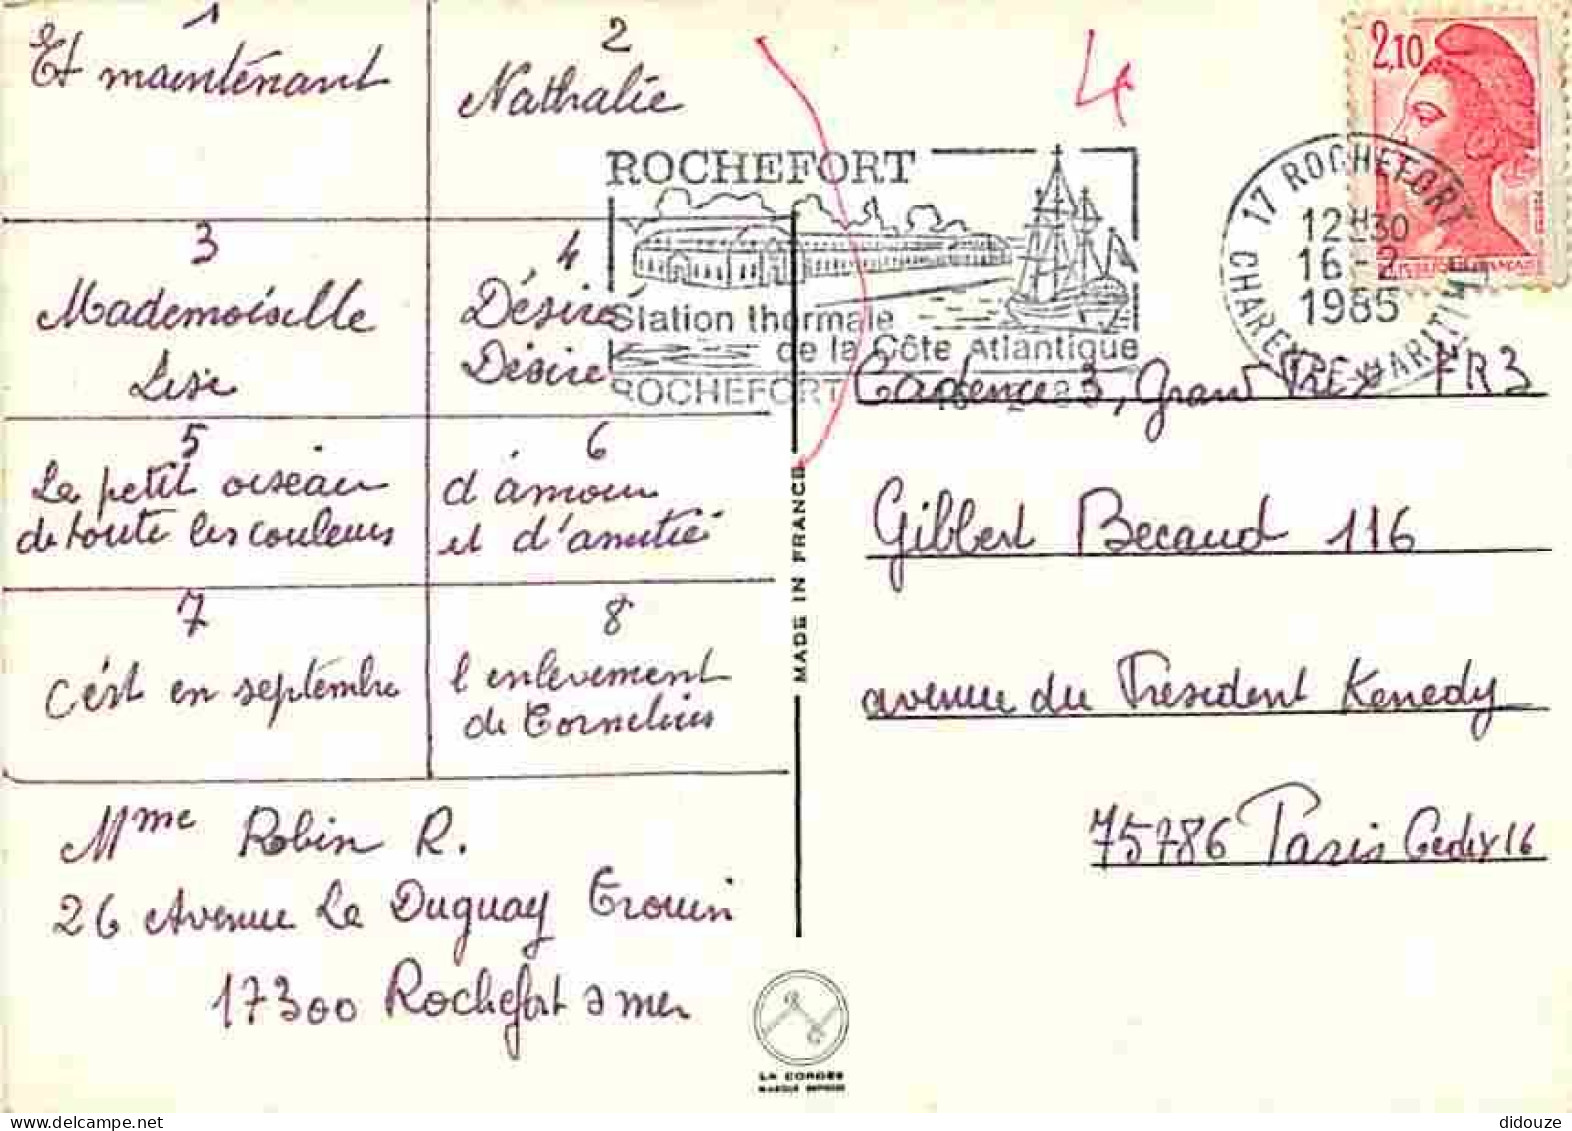 1
Et maintenant
2
Nathalie
3
Mademoiselle
Lise
4
Désiré
Désire
5
Le petit oiseau
de toute les couleurs
6
d'amour
et d'amitié
7
C'est en septembre
8
l'enlevement
de Cornelius
Mme Robin R.
26 Avenue La Duguay Trouin
17300 Rochefort s mer
4
2,10
ROCHEFORT
Station thermale
de la Côte Atlantique
ROCHEFORT
17 ROCHEFORT
12H30
16-2
1985
CHARENTE-MARITIME
Cadence 3, Grand Prix FR3
Gilbert Becaud 116
avenue du President Kenedy
75786 Paris Cedex 16
MADE IN FRANCE
LA CORDÉE
MARQUE DEPOSEE
didouze